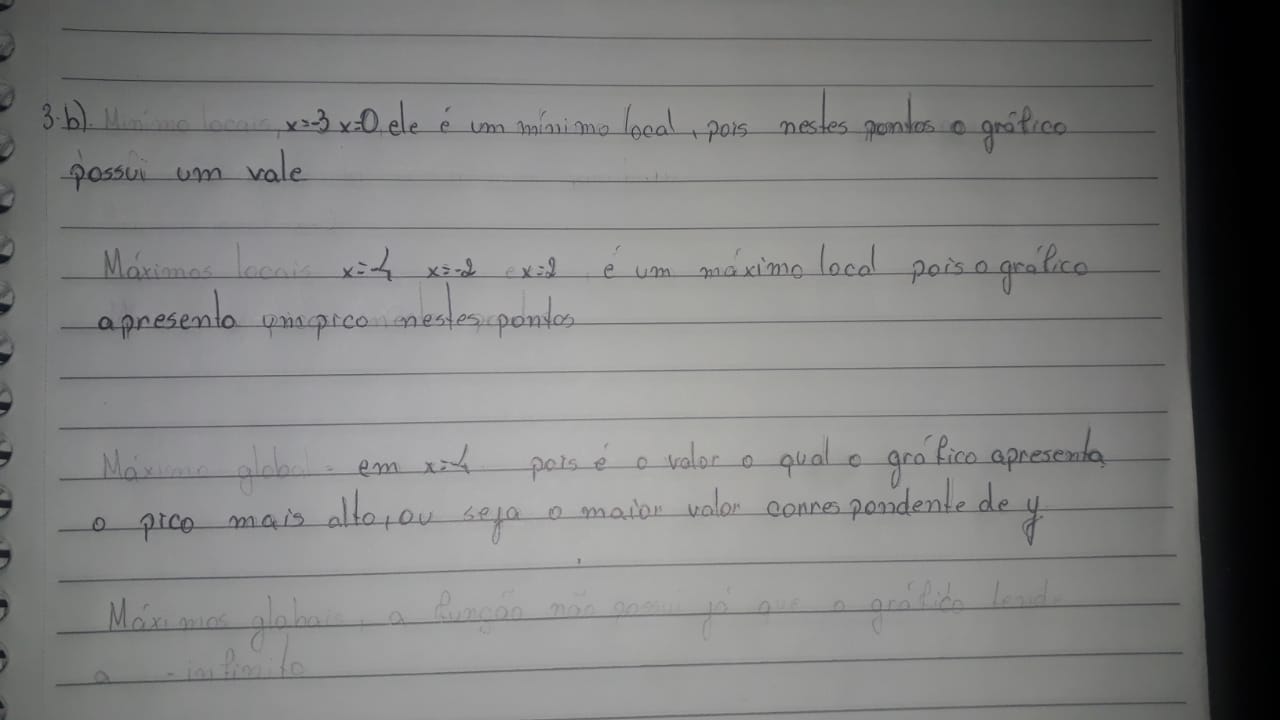 3.b) Mínimo locais, x=-3 x=0 ele é um mínimo local, pois nestes pontos o gráfico
possui um vale
Máximos locais x=-4 x=-2 e x=2 é um máximo local pois o gráfico
apresenta um pico nestes pontos
Máximo global: em x=-4 pois é o valor o qual o gráfico apresenta
o pico mais alto, ou seja o maior valor correspondente de y
Máximos globais, a função não possui já que o gráfico tende
a -infinito